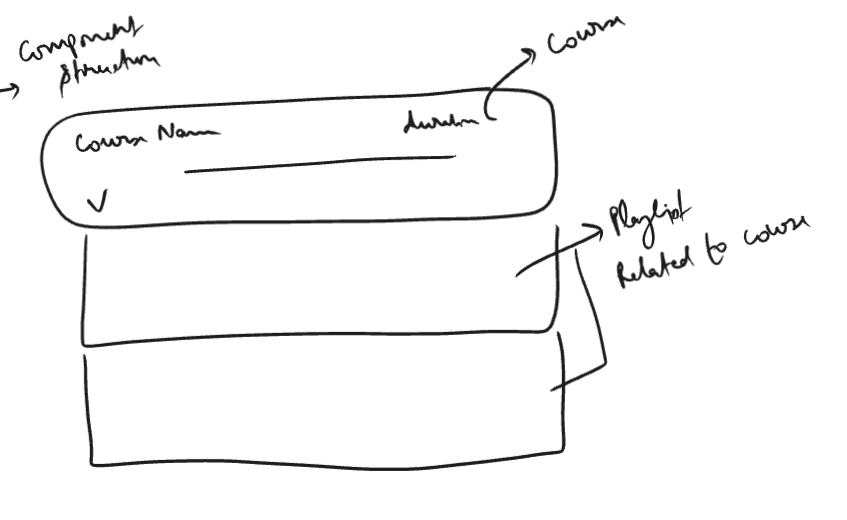 Component
Structure
Course
Course Name
duration
Playlist
Related to course